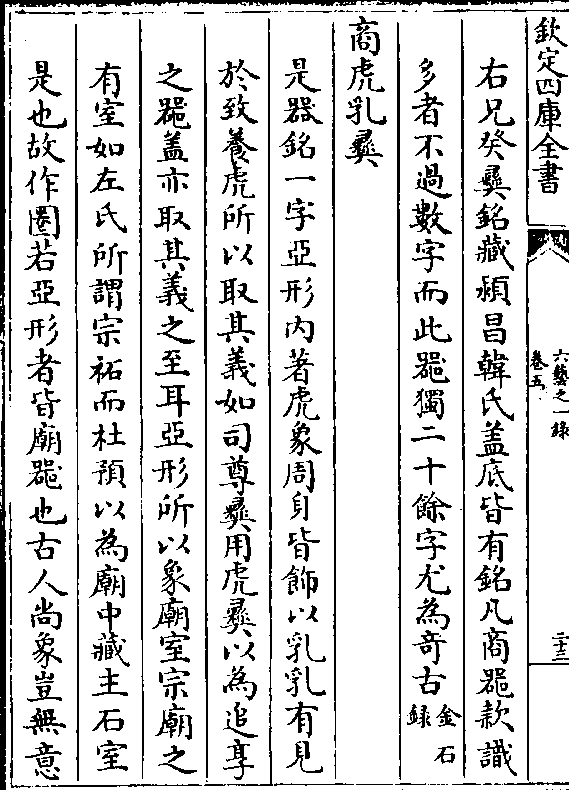 欽定四庫全書
六藝之一錄
卷五
二十三
右兄癸彝銘藏潁昌韓氏蓋底皆有銘凡商器款識
多者不過數字而此器獨二十餘字尤為奇古金石
錄
商虎乳彝
是器銘一字亞形內著虎象周身皆飾以乳乳有見
於致養虎所以取其義如司尊彝用虎彝以為追享
之器蓋亦取其義之至耳亞形所以象廟室宗廟之
有室如左氏所謂宗祏而杜預以為廟中藏主石室
是也故作圈若亞形者皆廟器也古人尚象豈無意